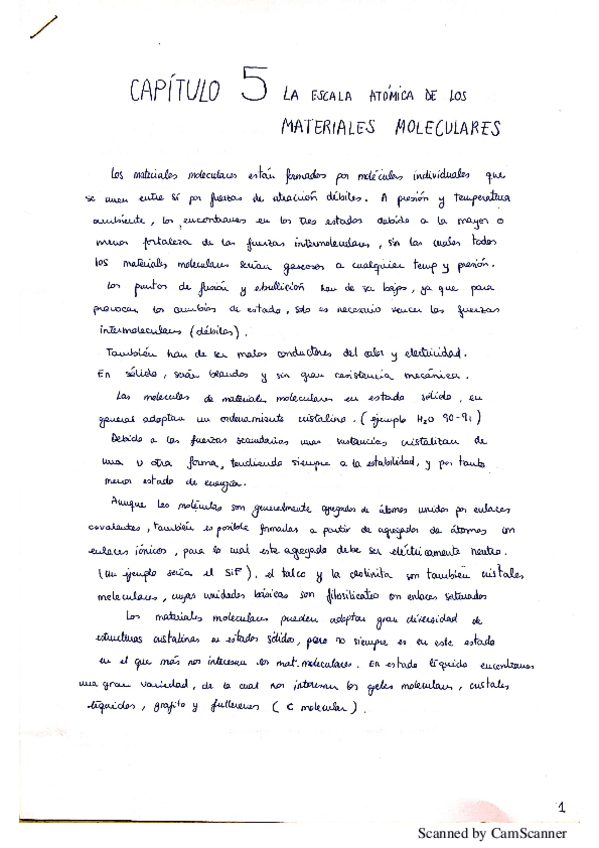 CAPÍTULO 5 LA ESCALA ATÓMICA DE LOS
MATERIALES MOLECULARES
Los materiales moleculares están formados por moléculas individuales que
se unen entre sí por fuerzas de atracción débiles. A presión y temperatura
ambiente, los encontramos en los tres estados debido a la mayor o
menor fortaleza de las fuerzas intermoleculares, sin las cuales todos
los materiales moleculares serían gaseosos a cualquier temp y presión.
Los puntos de fusión y ebullición han de ser bajos, ya que para
provocar los cambios de estado, solo es necesario vencer las fuerzas
intermoleculares (débiles).
También han de ser malos conductores del calor y electricidad.
En sólido, serán blandos y sin gran resistencia mecánica.
Las moléculas de materiales moleculares en estado sólido, en
general adoptan un ordenamiento cristalino. (ejemplo H2O
Debido a las fuerzas secundarias unas sustancias cristalizan de
una u otra forma, tendiendo siempre a la estabilidad, y por tanto
menor estado de energía.
Aunque las moléculas son generalmente agregados de átomos unidos por enlaces
covalentes, también es posible formarlas a partir de agregados de átomos con
enlaces iónicos, para lo cual este agregado debe ser eléctricamente neutro.
(un ejemplo sería el SiF). el talco y la son también cristales
moleculares, cuyas unidades básicas son filosilicatos con enlaces saturados
Los materiales moleculares pueden adoptar gran diversidad de
estructuras cristalinas en estados sólidos, pero no siempre es en este estado
en el que más nos interesen los mat. moleculares. En estado líquido encontramos
una gran variedad, de la cual nos interesan los geles moleculares, cristales
líquidos, grafito y fullerenos (C molecular).
1
Scanned by CamScanner